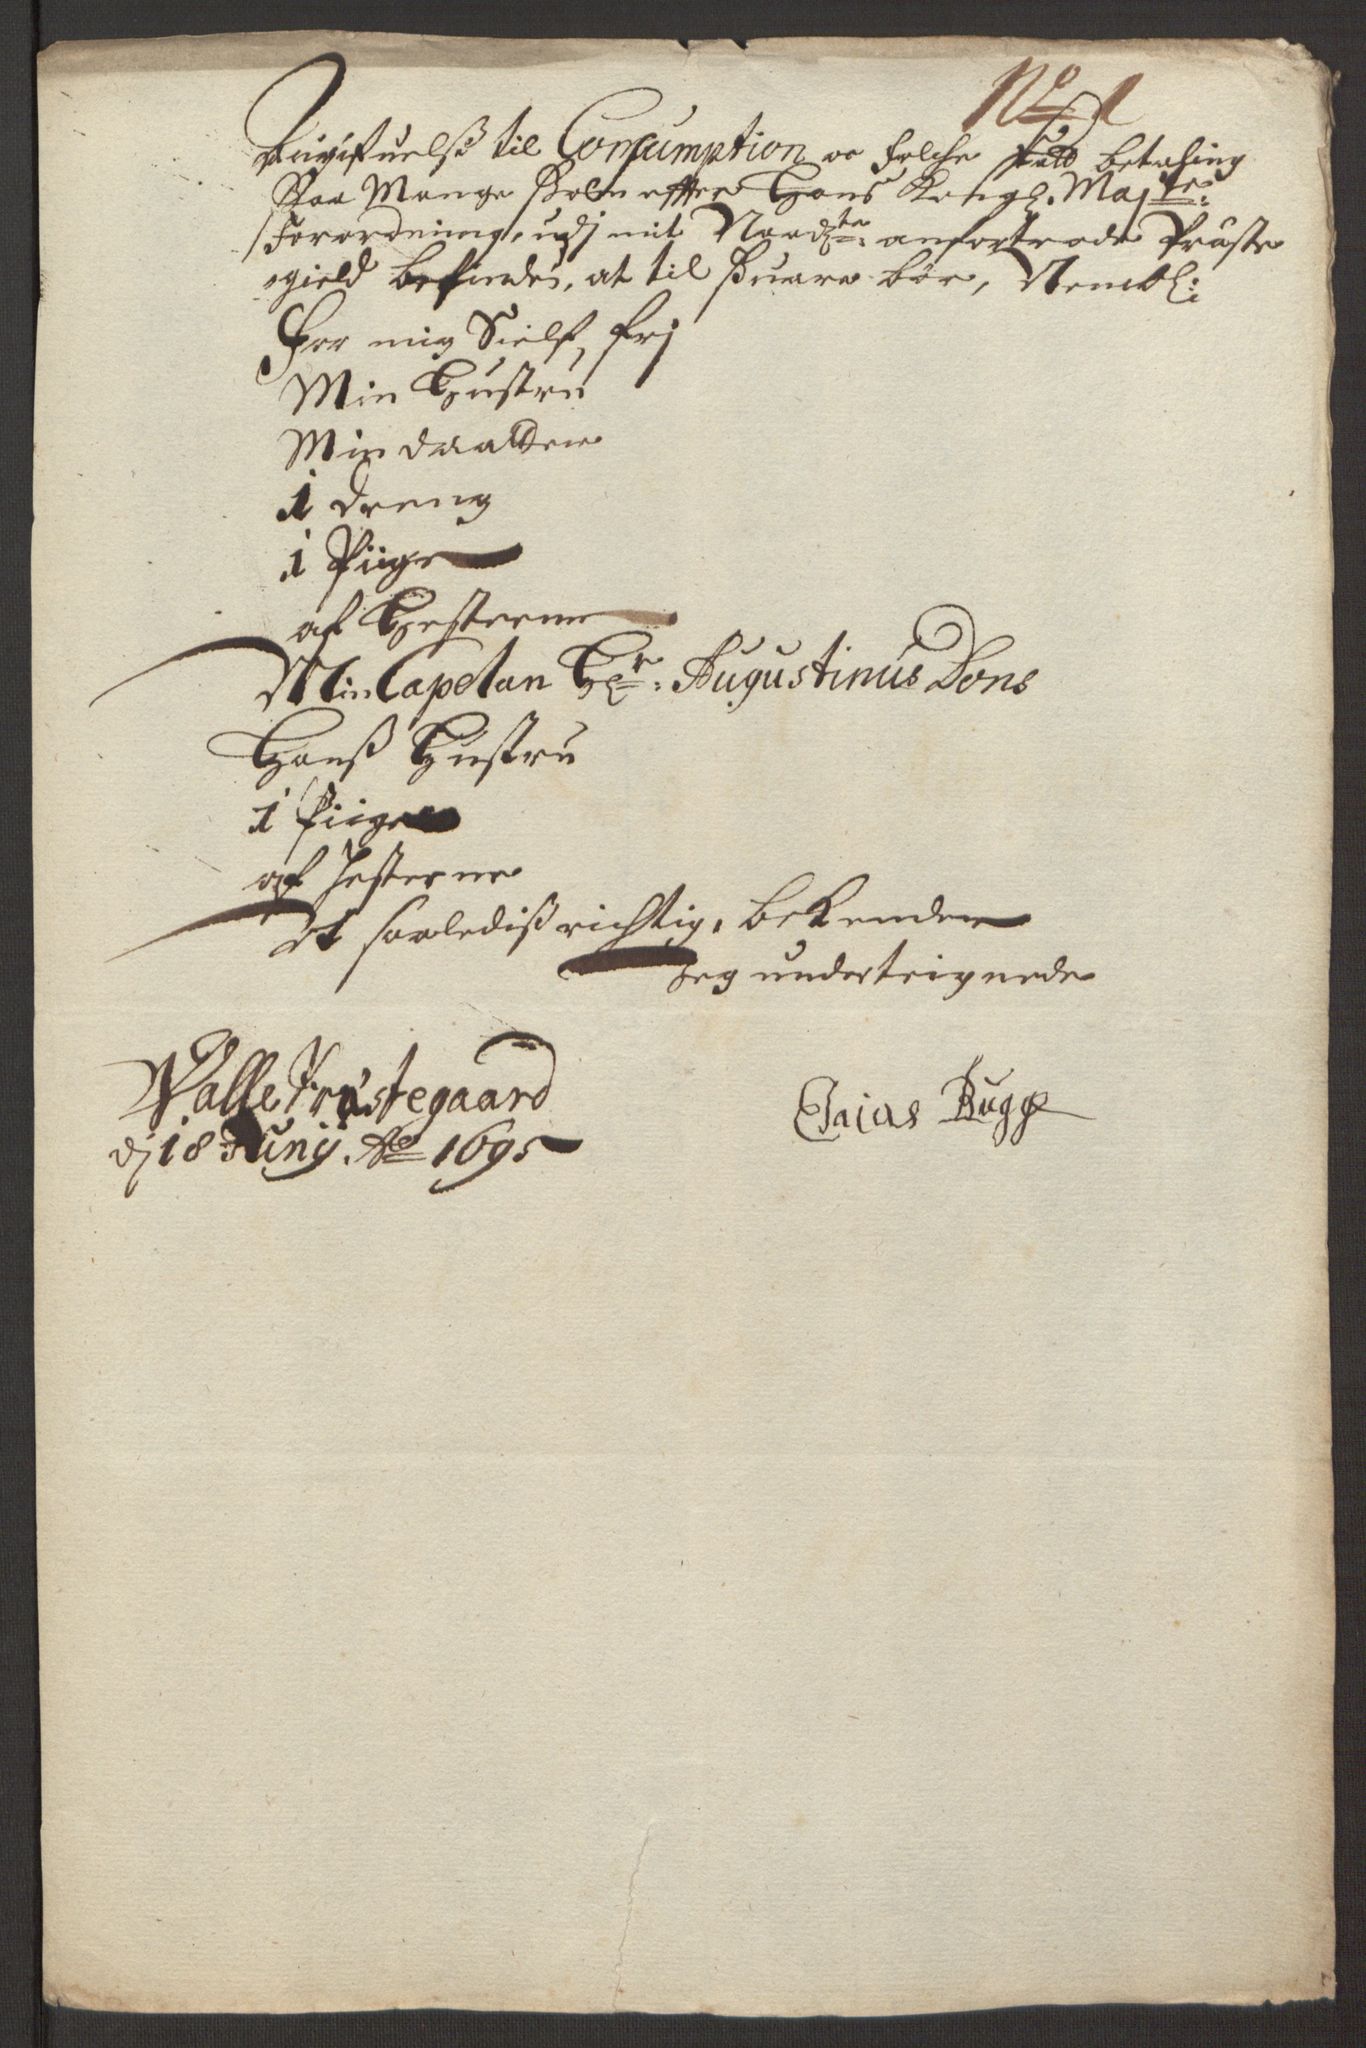 No 1
Angifvelse til Consumption oc folche skatt betaling
Saa Mange som effter Hans Kongl. Mayts:
Forordning, udj mit Naadste: anfortroede Præste
gield befindes, at til suare bør, Nembl:
For mig Sielf, frj
Min Hustru
Min daatter
1 dreng
1 Piige
af Hesterne
Min Capelan Hr: Augustinus Dons
Hanß Hustru
1 Piige
af Hesterne
At saalediß richtig, bekender
Jeg underteignede
Walle Præstegaard
dj 18 Junij. Ao 1695
Esaias Bugge